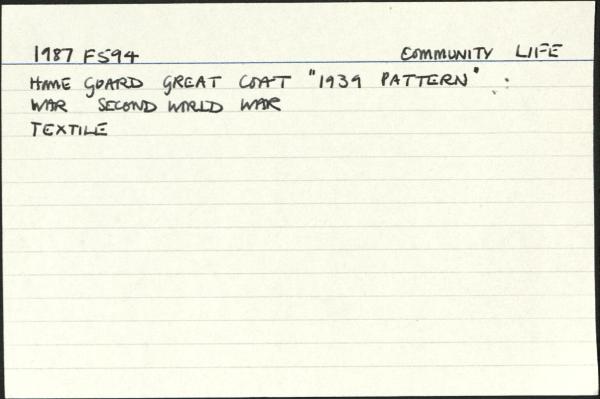 1987 F594 COMMUNITY LIFE
HOME GUARD GREAT COAT "1939 PATTERN" :
WAR SECOND WORLD WAR
TEXTILE